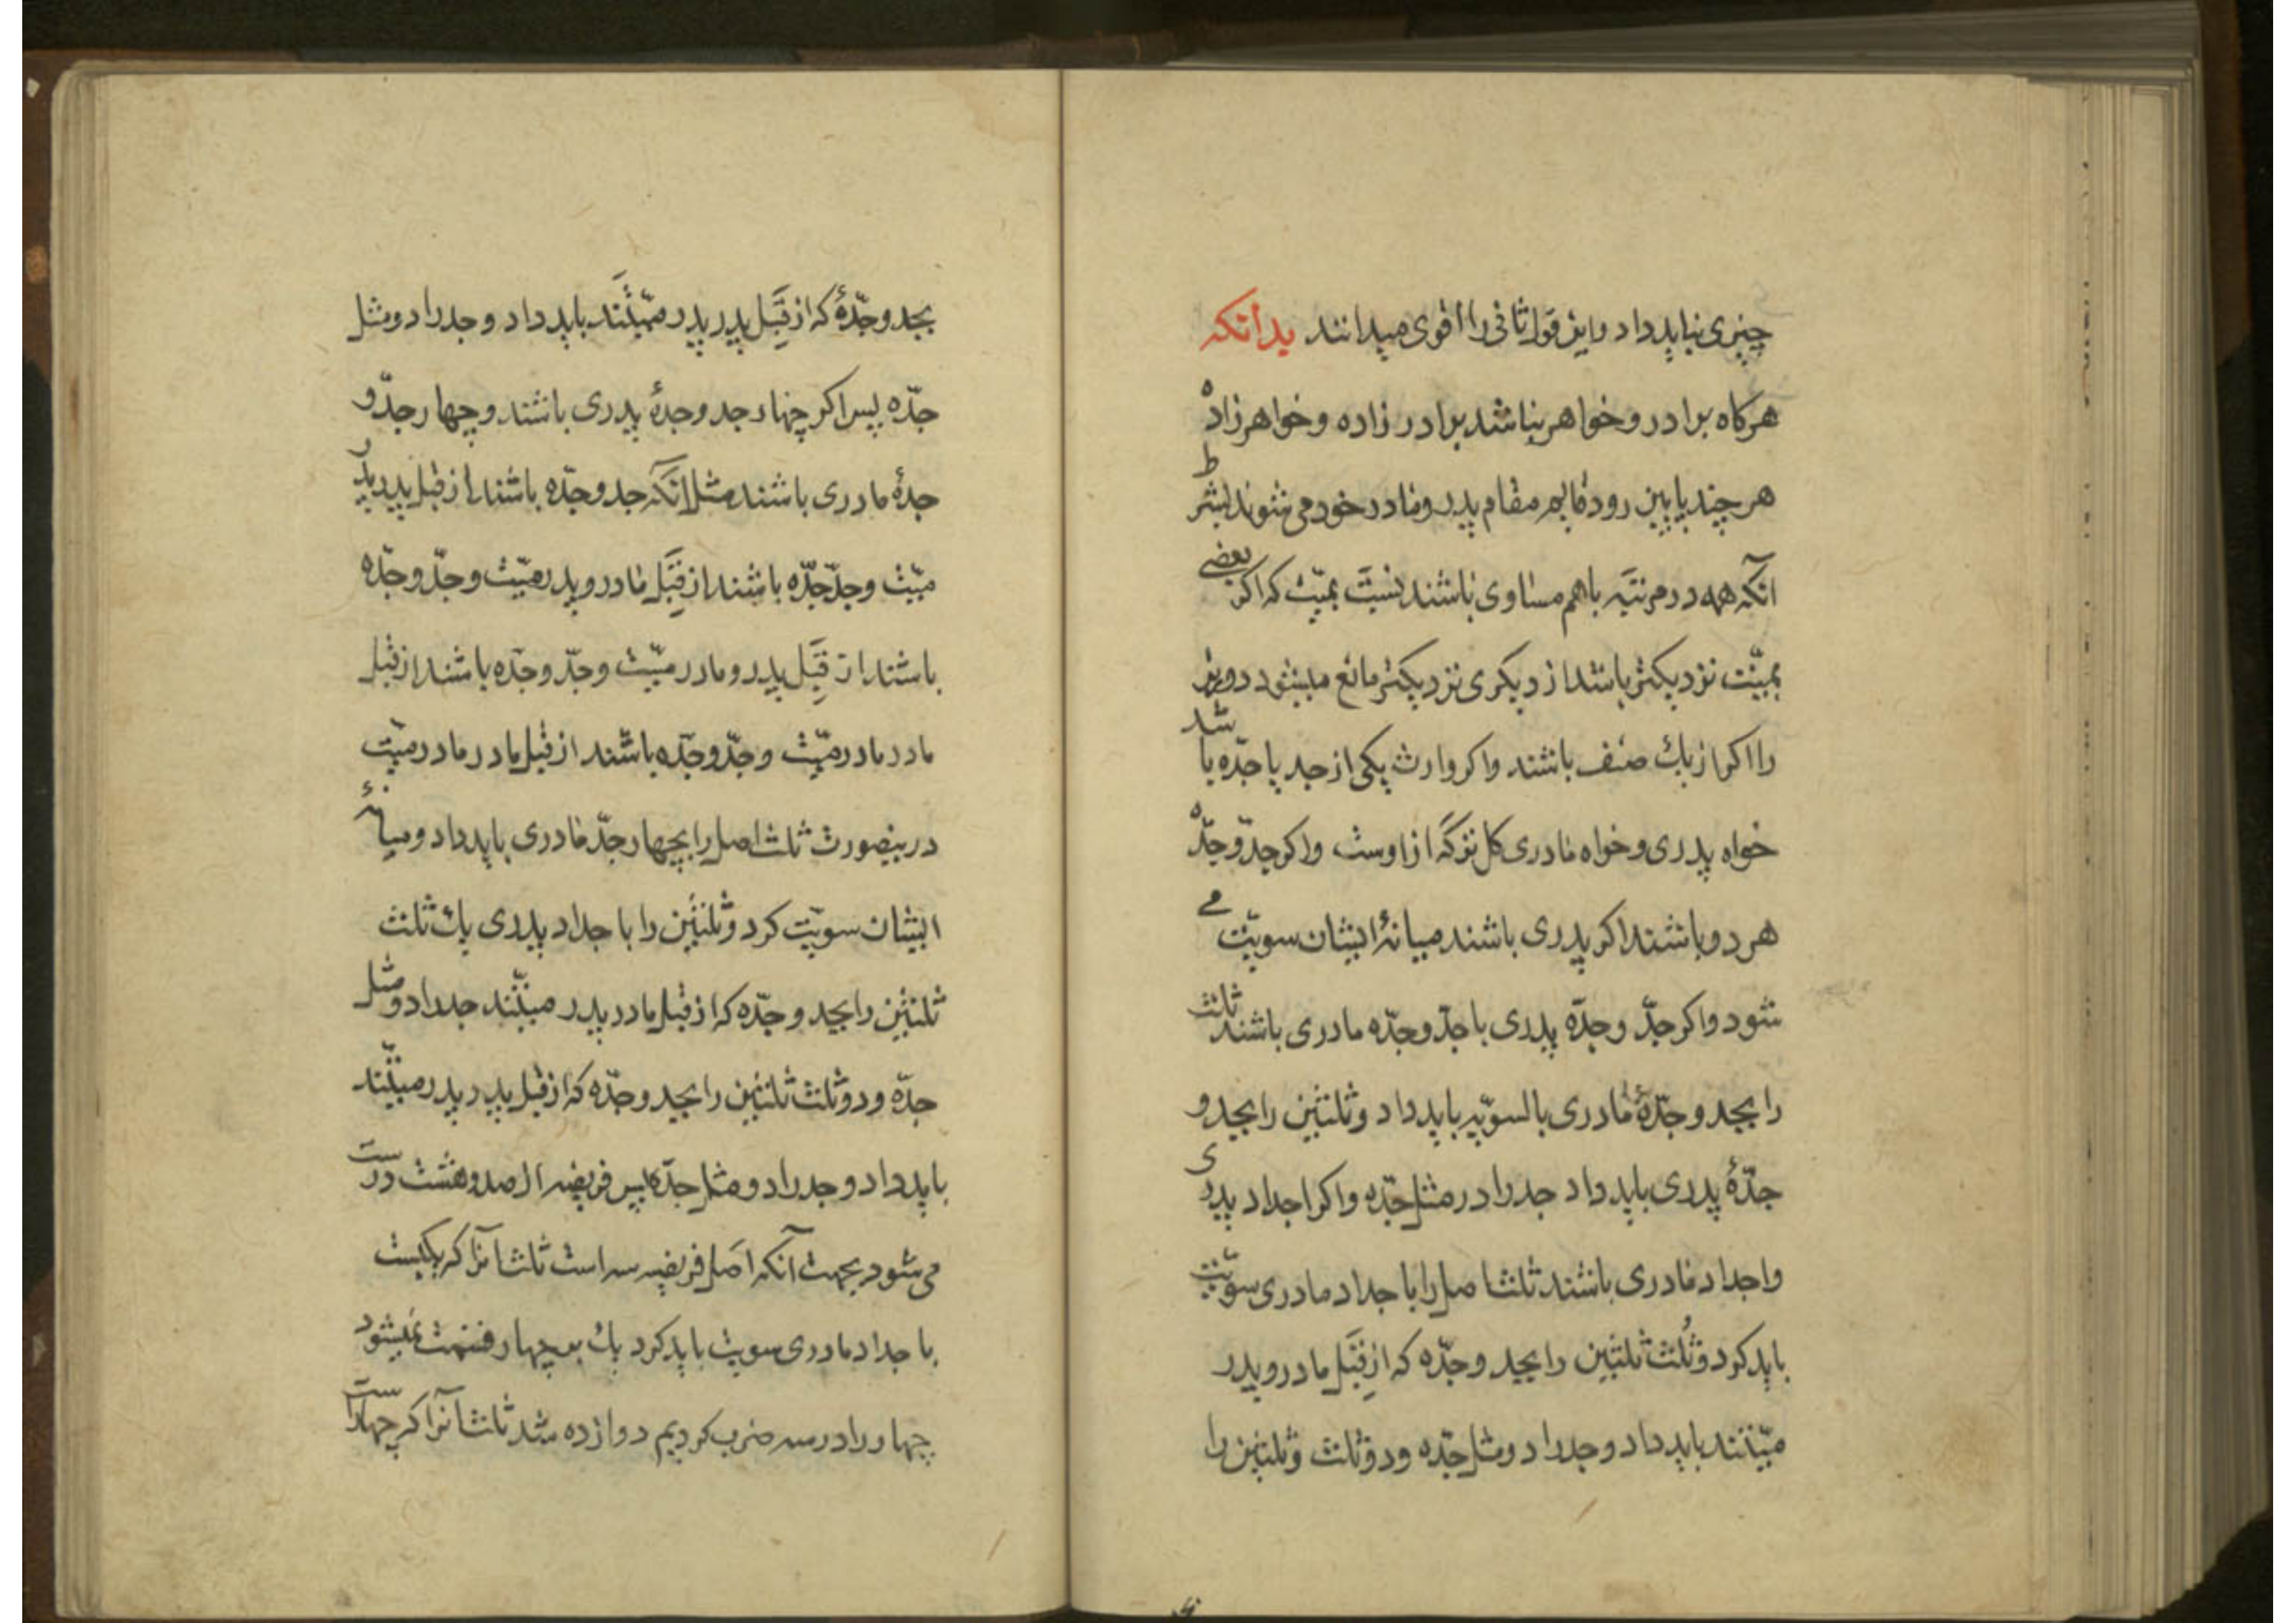 چیزی نباید داد و این قول ثانی را اقوی میدانند بدانکه
هرکاه برادر و خواهر نباشد برادر زاده و خواهر زاده
هر چند پایین رود قایم مقام پدر و مادر خود می شوند بشرط
آنکه همه در مرتبه باهم مساوی باشند نسبت بمیّت که اکر بعضی
بمیّت نزدیکتر باشند از دیکری نزدیکتر مانع میشود دورتر
را اکر از یك صنف باشند و اکر وارث یکی از جد یا جدّه باشد
خواه پدری و خواه مادری کل ترکه از اوست و اکر جدّ و جدّه
هر دو باشند اکر پدری باشند میانۀ ایشان سویّت می
شود و اکر جدّ و جدّه پدری با جدّ و جدّه مادری باشند ثلث
را بجد و جدّۀ مادری بالسویّه باید داد و ثلثین را بجد و
جدّۀ پدری باید داد جد را در مثل جدّه و اکر اجداد پدری
و اجداد مادری باشند ثلث اصل را با جداد مادری سویّت
باید کرد و ثُلث ثلثین را بجد و جدّه که از قِبَل مادر و پدر
میّتند باید داد و جد را دو مثل جدّه و دو ثلث و ثلثین را
بجد و جدّۀ که از قِبَل پدر پدر میّتند باید داد و جد را دو مثل
جدّه پس اکر چهار جد و جدۀ پدری باشند و چهار جدّ و
جدۀ مادری باشند مثل آنکه جد و جدّه باشند از قبل پدر پدر
میّت و جدّ جدّه باشند از قِبَل مادر و پدر میّت و جدّ و جدّه
باشند از قِبَل پدر و مادر میّت و جدّ و جدّه باشند از قبل
مادر مادر میّت و جدّ و جدّه باشند از قبل مادر مادر میّت
درینصورت ثلث اصل را بچهار جدّ مادری باید داد و میانۀ
ایشان سویّت کرد و ثلثین را با جداد پدری یك ثلث
ثلثین را بجد و جدّه که از قبل مادر پدر میّتند جد را دو مثل
جدّه و دو ثلث ثلثین را بجد و جدّه که از قبل پدر پدر میّتند
باید داد و جد را دو مثل جدّه پس فریضه از صد و هشت درست
می شود بجهت آنکه اصل فریضه سه است ثلث آنرا که یکیست
با جداد مادری سویت باید کرد یك بچهار قسمت نمیشود
چهار را در سه ضرب کردیم دوازده شد ثلث آنرا که چهار است